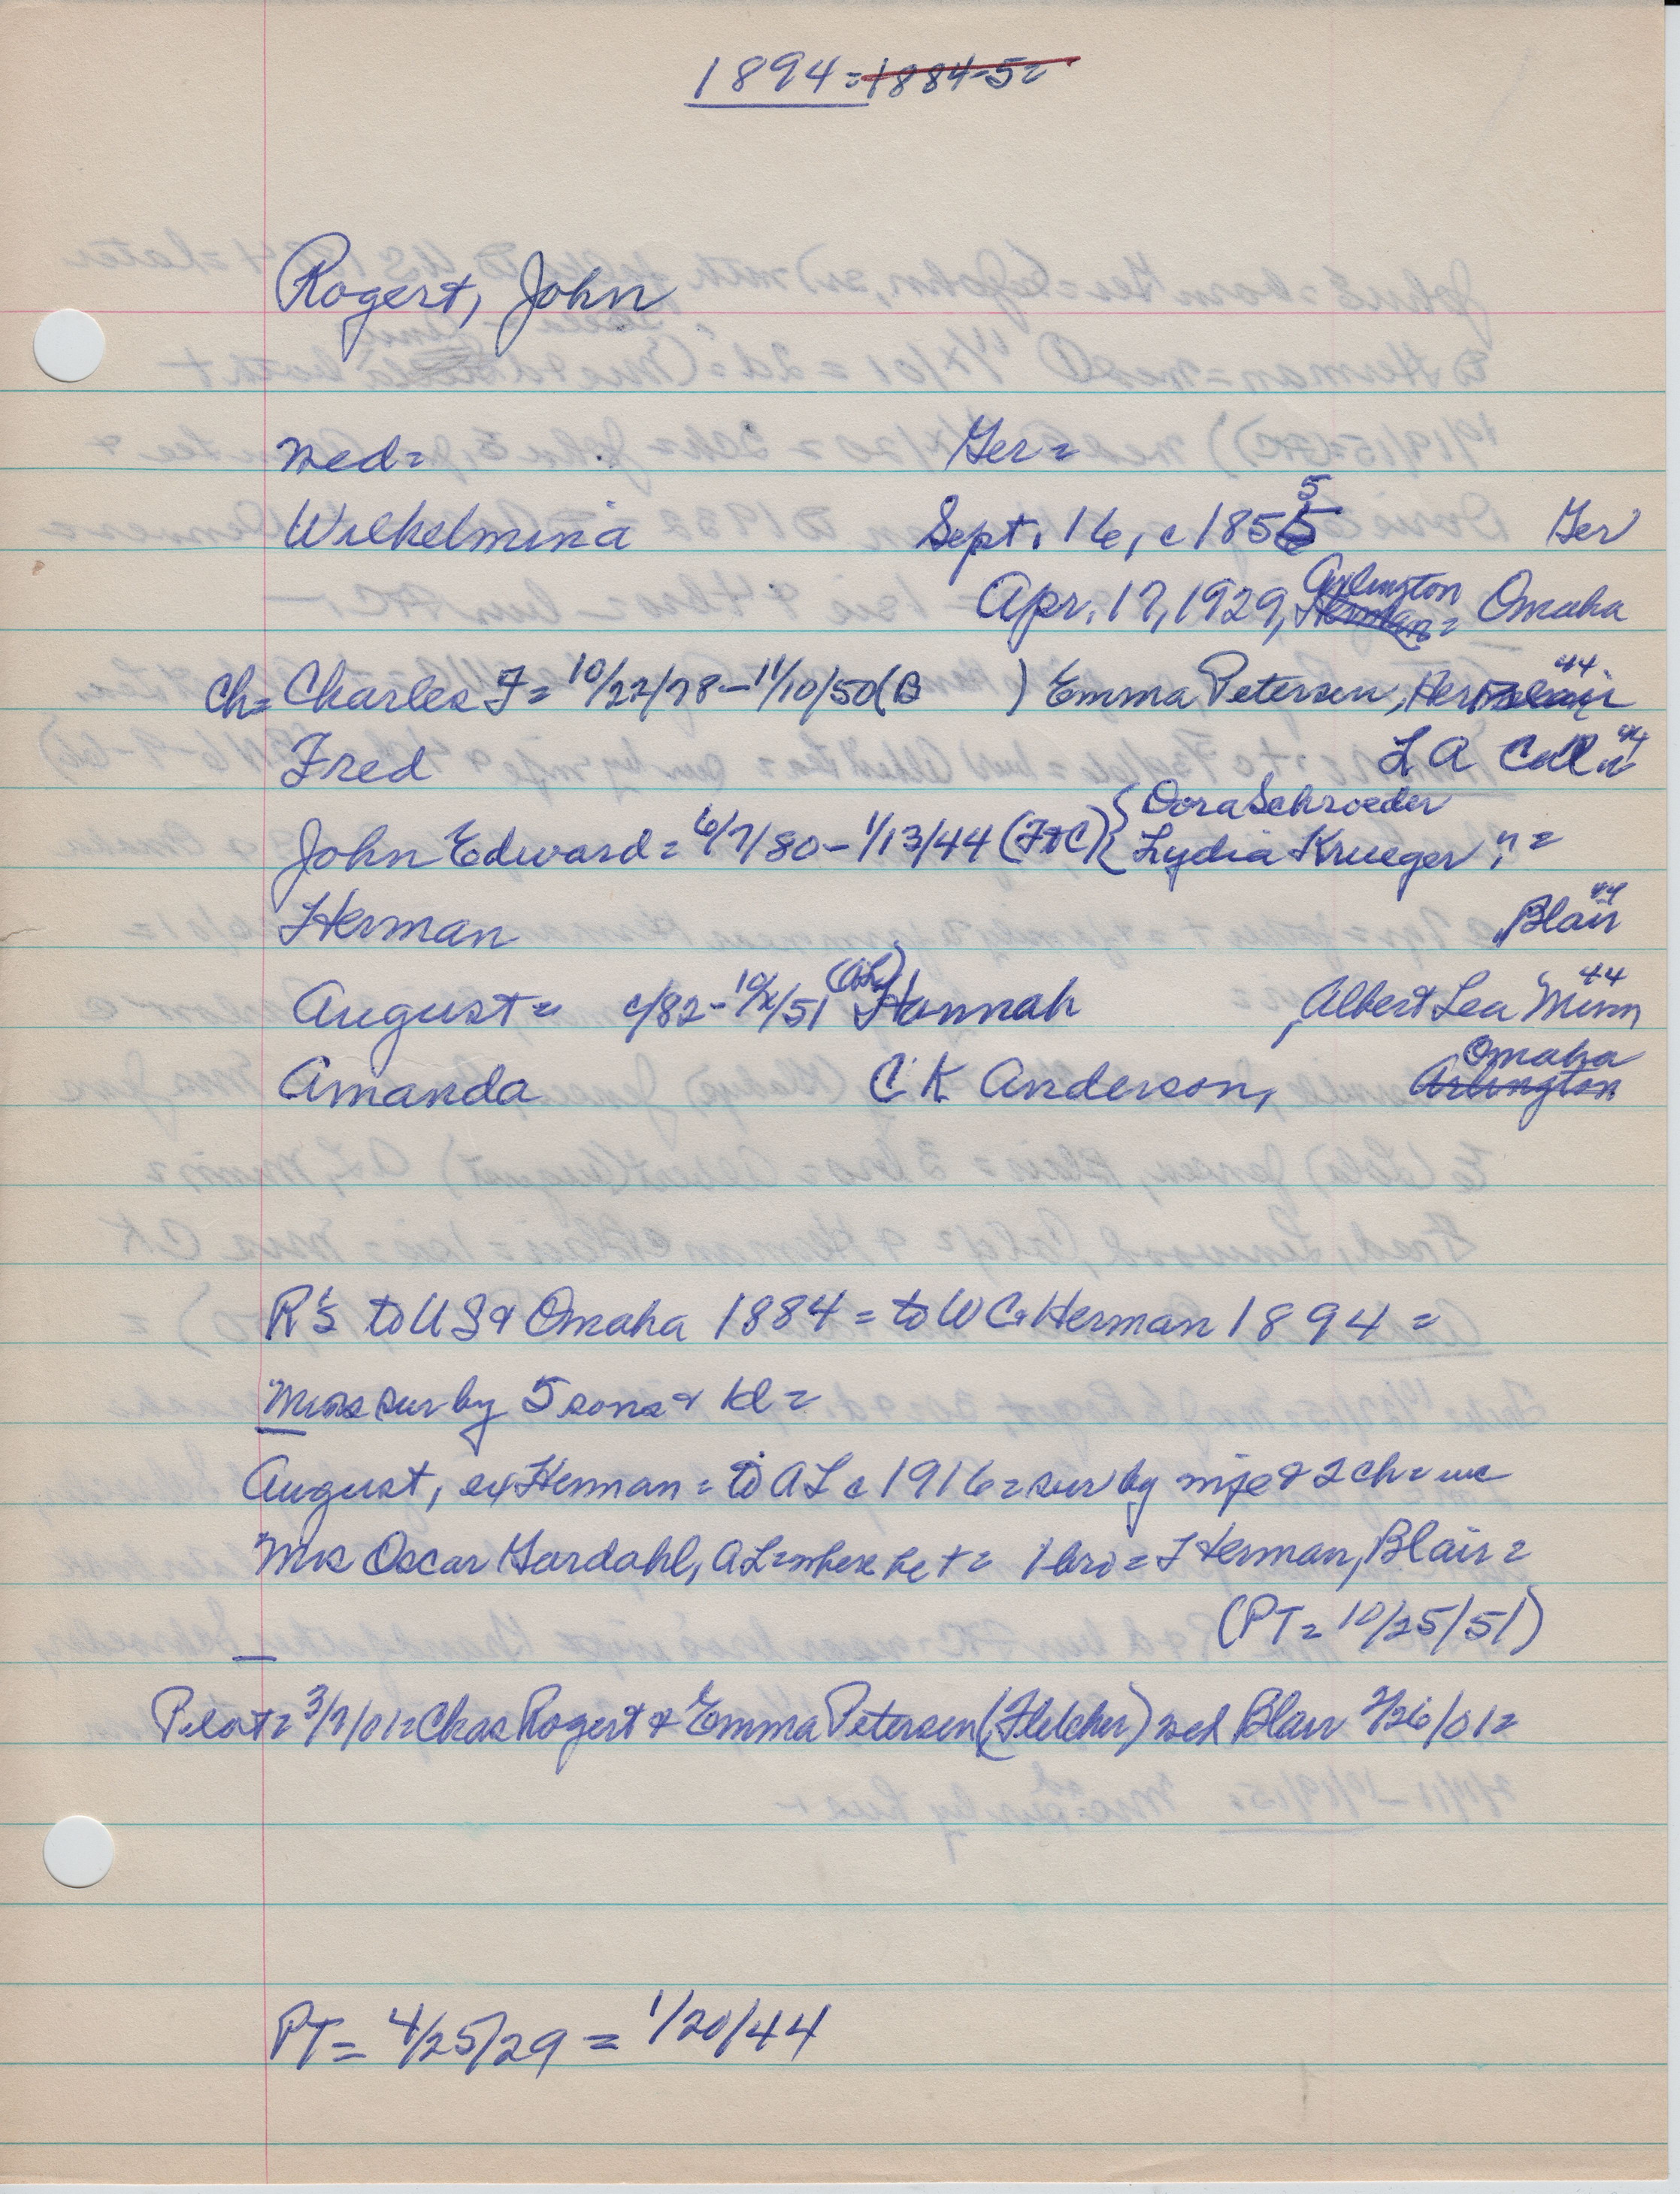 1894 = 1884-5 =
Rogert, John
wed = Ger =
Wilhelmina Sept. 16, c 1855 Ger
Apr. 17, 1929, Arlington = Omaha
Ch = Charles F = 10/22/78 – 11/10/50 (B ) Emma Petersen, Her 44
Fred L A Col 44
John Edward = 6/7/80 – 1/13/44 (FtC) { Dora Schroeder
Lydia Krueger, " =
Herman Blair 44
August = c/82 – 10/x/51 (AL) Hannah , Albert Lea Minn 44
Amanda C K Anderson, Omaha Arlington
R's to US & Omaha 1884 = to WC & Herman 1894 =
Mrs sur by 5 sons & 1d =
August, ex Herman = to AL c 1916 = sur by wife & 2 ch = inc
Mrs Oscar Gardahl, AL = where he + = 1 bro = F Herman, Blair =
(PT = 10/25/51)
Pilot = 3/7/01 = Chas Rogert & Emma Petersen (Fletcher) wed Blair 2/26/01 =
PT = 4/25/29 = 1/20/44